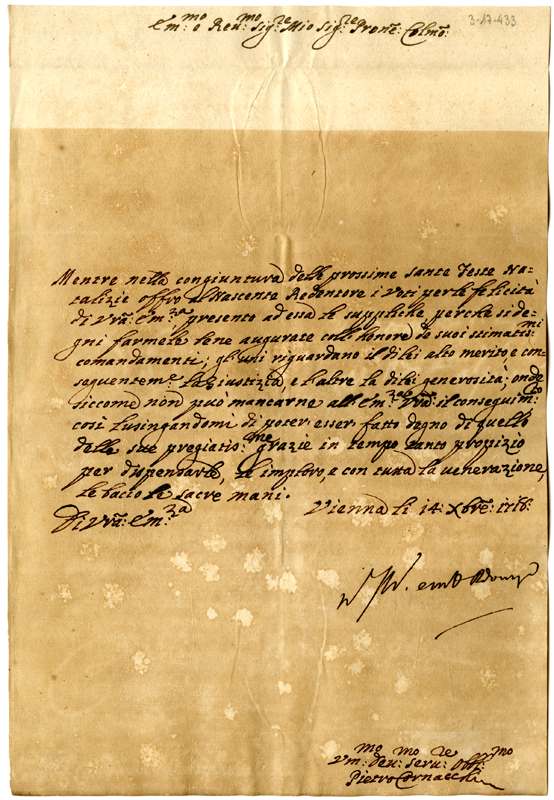 3-17-433
Em:mo e Reu:mo Sig:re Mio Sig:re Prone: Colmo:
Mentre nella congiuntura delle prossime Sante Feste Na=
talizie offro al Nascente Redentore i Voti per le felicità
di Vrã: Em:za presento ad essa le suppliche perche si de=
gni farmele bene augurate coll'honore de suoi stimatis:mi
comandamenti; gl'uni riguardano il di lei alto merito e con=
seguenteme: la giustizia, e l'altre la di lei generosità; onde
siccome non può mancarne all'Em:za Vrã: il conseguim:to
così lusingandomi di poter esser fatto degno di quello
delle sue pregiatis:me grazie in tempo tanto propizio
per dispensarle, le imploro, e con tutta la venerazione,
le bacio le sacre mani.
Di Vrã: Em:za
Vienna li 14: Xbre: 1718:
Vm:mo deu:mo seru:re obb:mo
Pietro Cornacchi